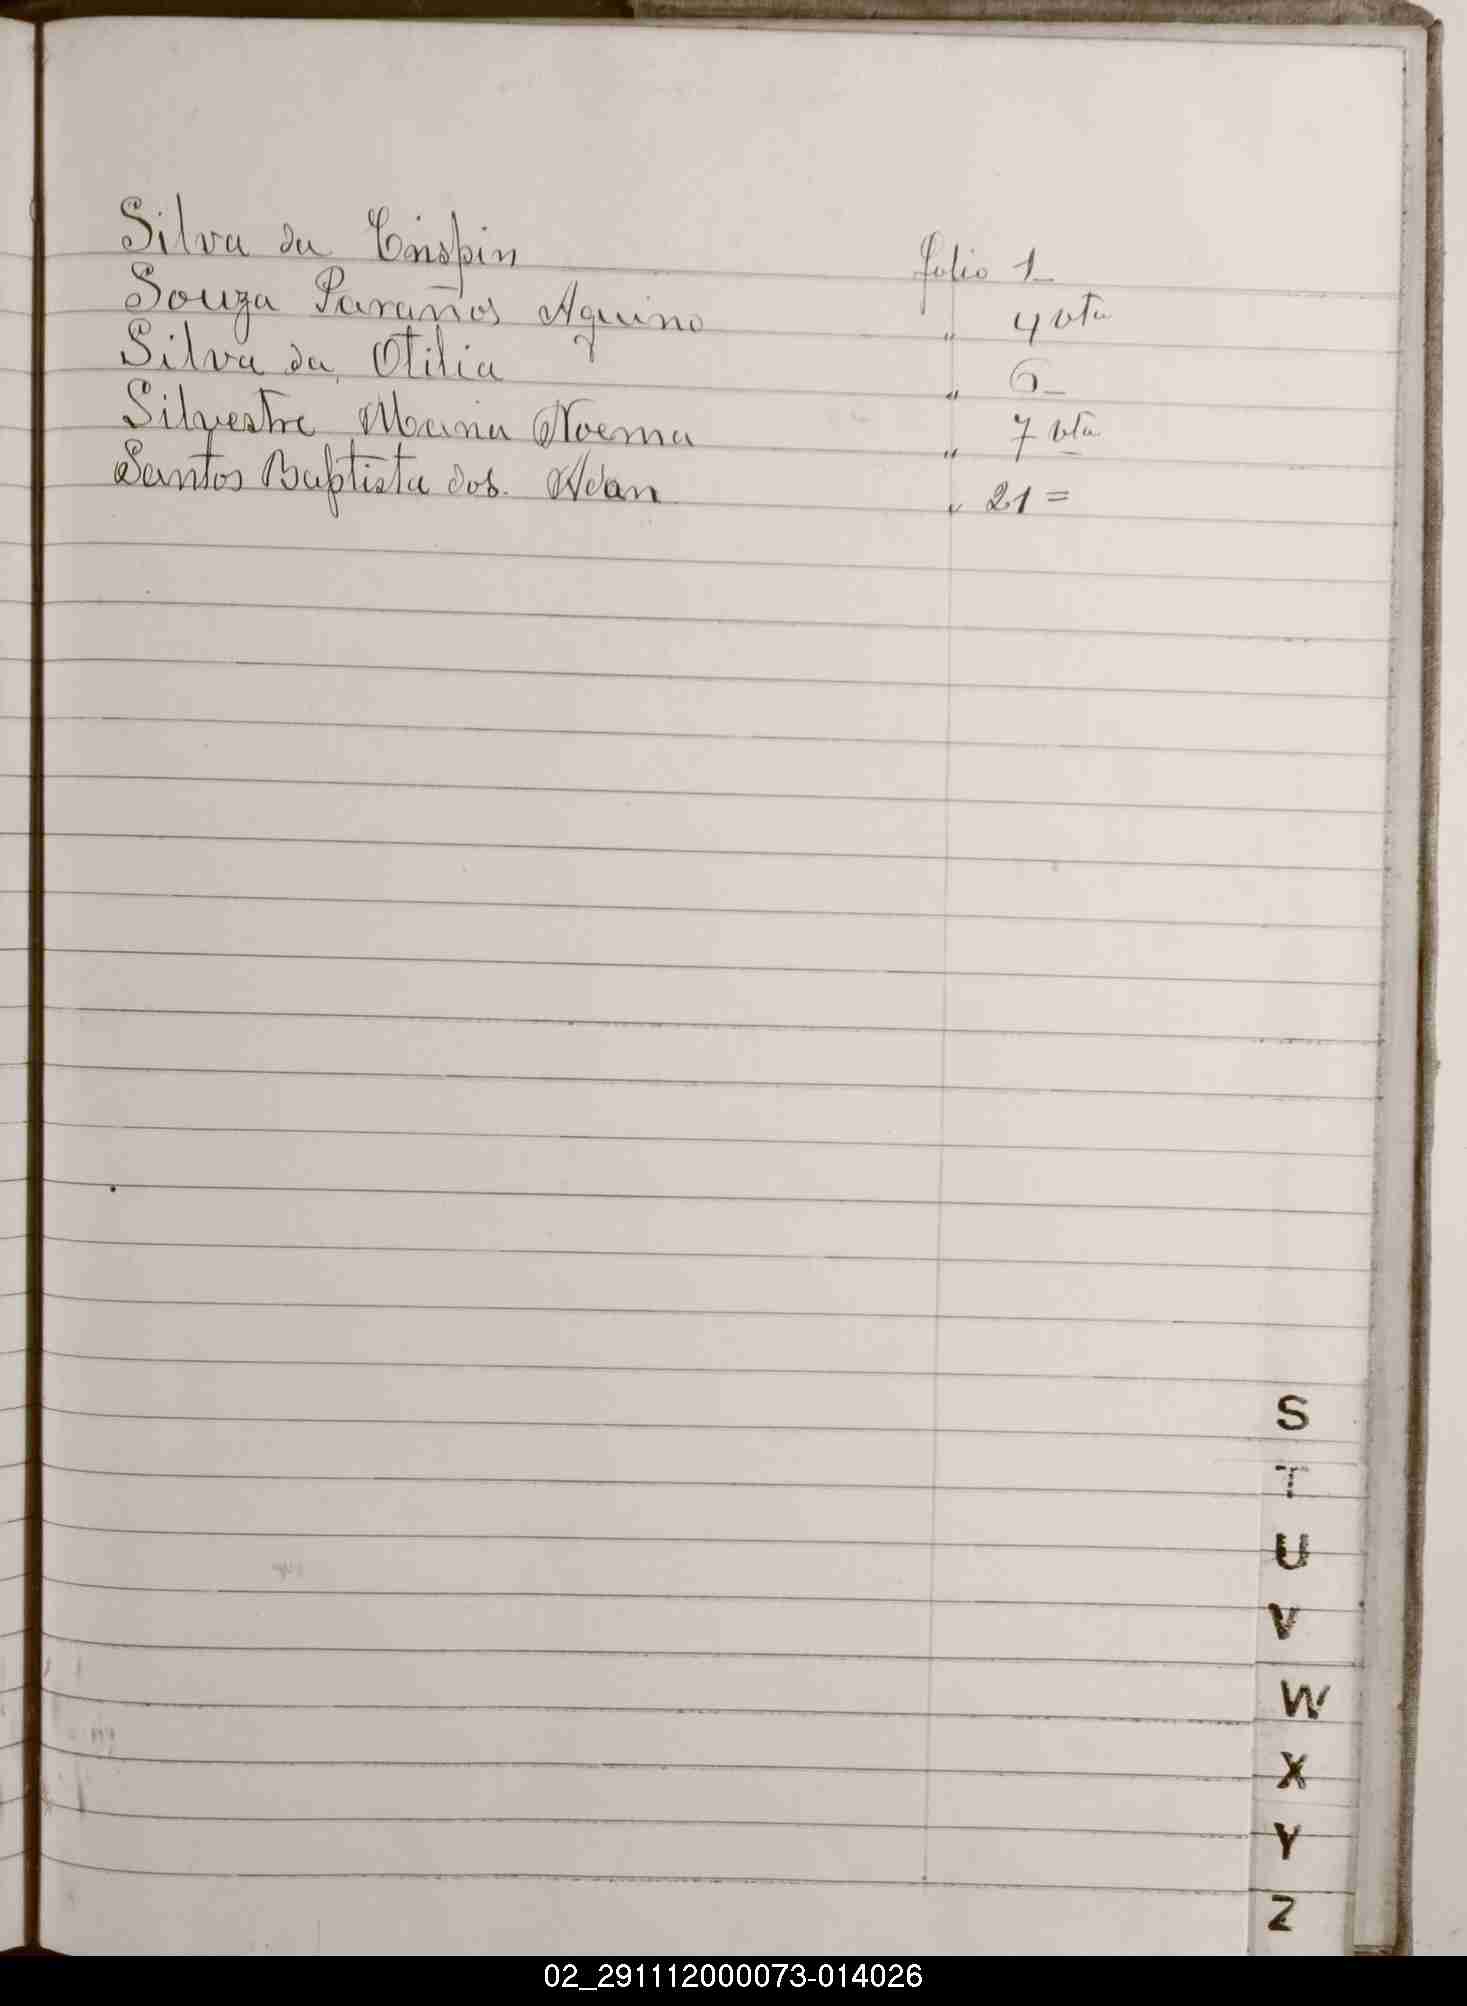 Silva da Crispin folio 1_
Souza Paraños Aquino " 4 vta
Silva da Otilia " 6_
Silvestre Maria Noema " 7 vta
Santos Baptista dos. Adan " 21 =
S
T
U
V
W
X
Y
Z
02_291112000073-014026